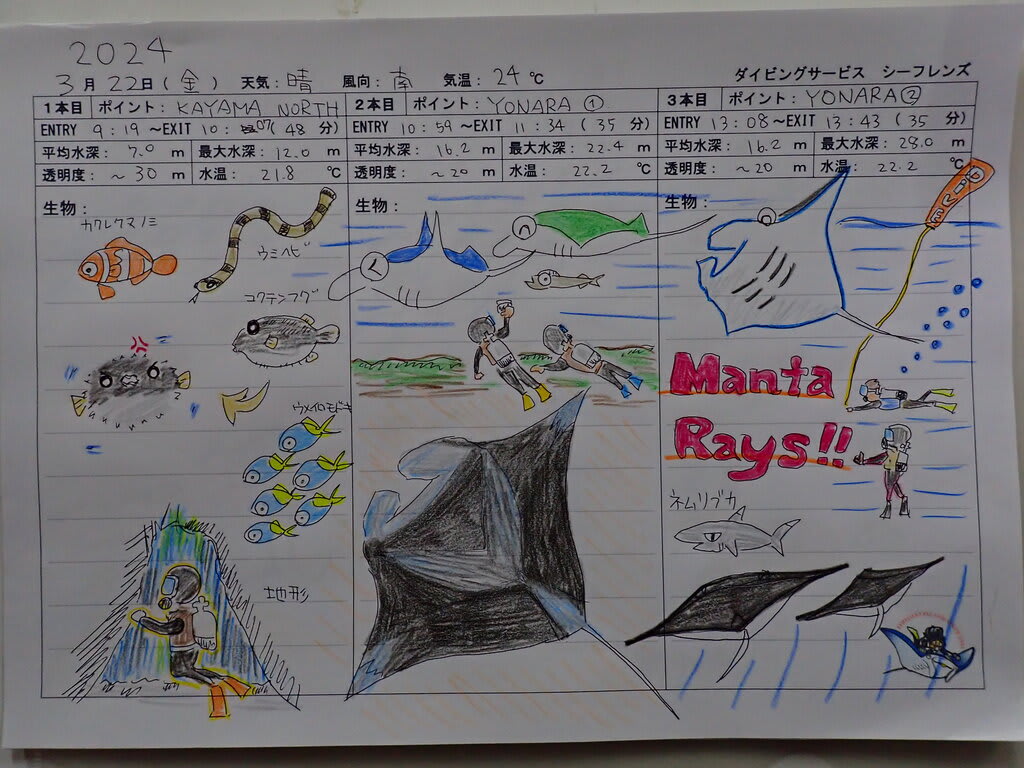 2024
3月 22日(金) 天気:晴 風向:南 気温:24℃ ダイビングサービス シーフレンズ
1本目 ポイント:KAYAMA NORTH
ENTRY 9:19 ～EXIT 10:07(48 分)
平均水深: 7.0 m 最大水深: 12.0 m
透明度: ～30 m 水温: 21.8 ℃
生物:
カクレクマノミ
ウミヘビ
コクテンフグ
ウメイロモドキ
地形
2本目 ポイント:YONARA ①
ENTRY 10:59 ～EXIT 11:34 (35 分)
平均水深: 16.2 m 最大水深: 22.4 m
透明度: ～20 m 水温: 22.2 ℃
生物:
3本目 ポイント:YONARA②
ENTRY 13:08 ～EXIT 13:43 (35 分)
平均水深: 16.2 m 最大水深: 28.0 m
透明度: ～20 m 水温: 22.2 ℃
生物:
DIVE
Manta
Rays!!
ネムリブカ